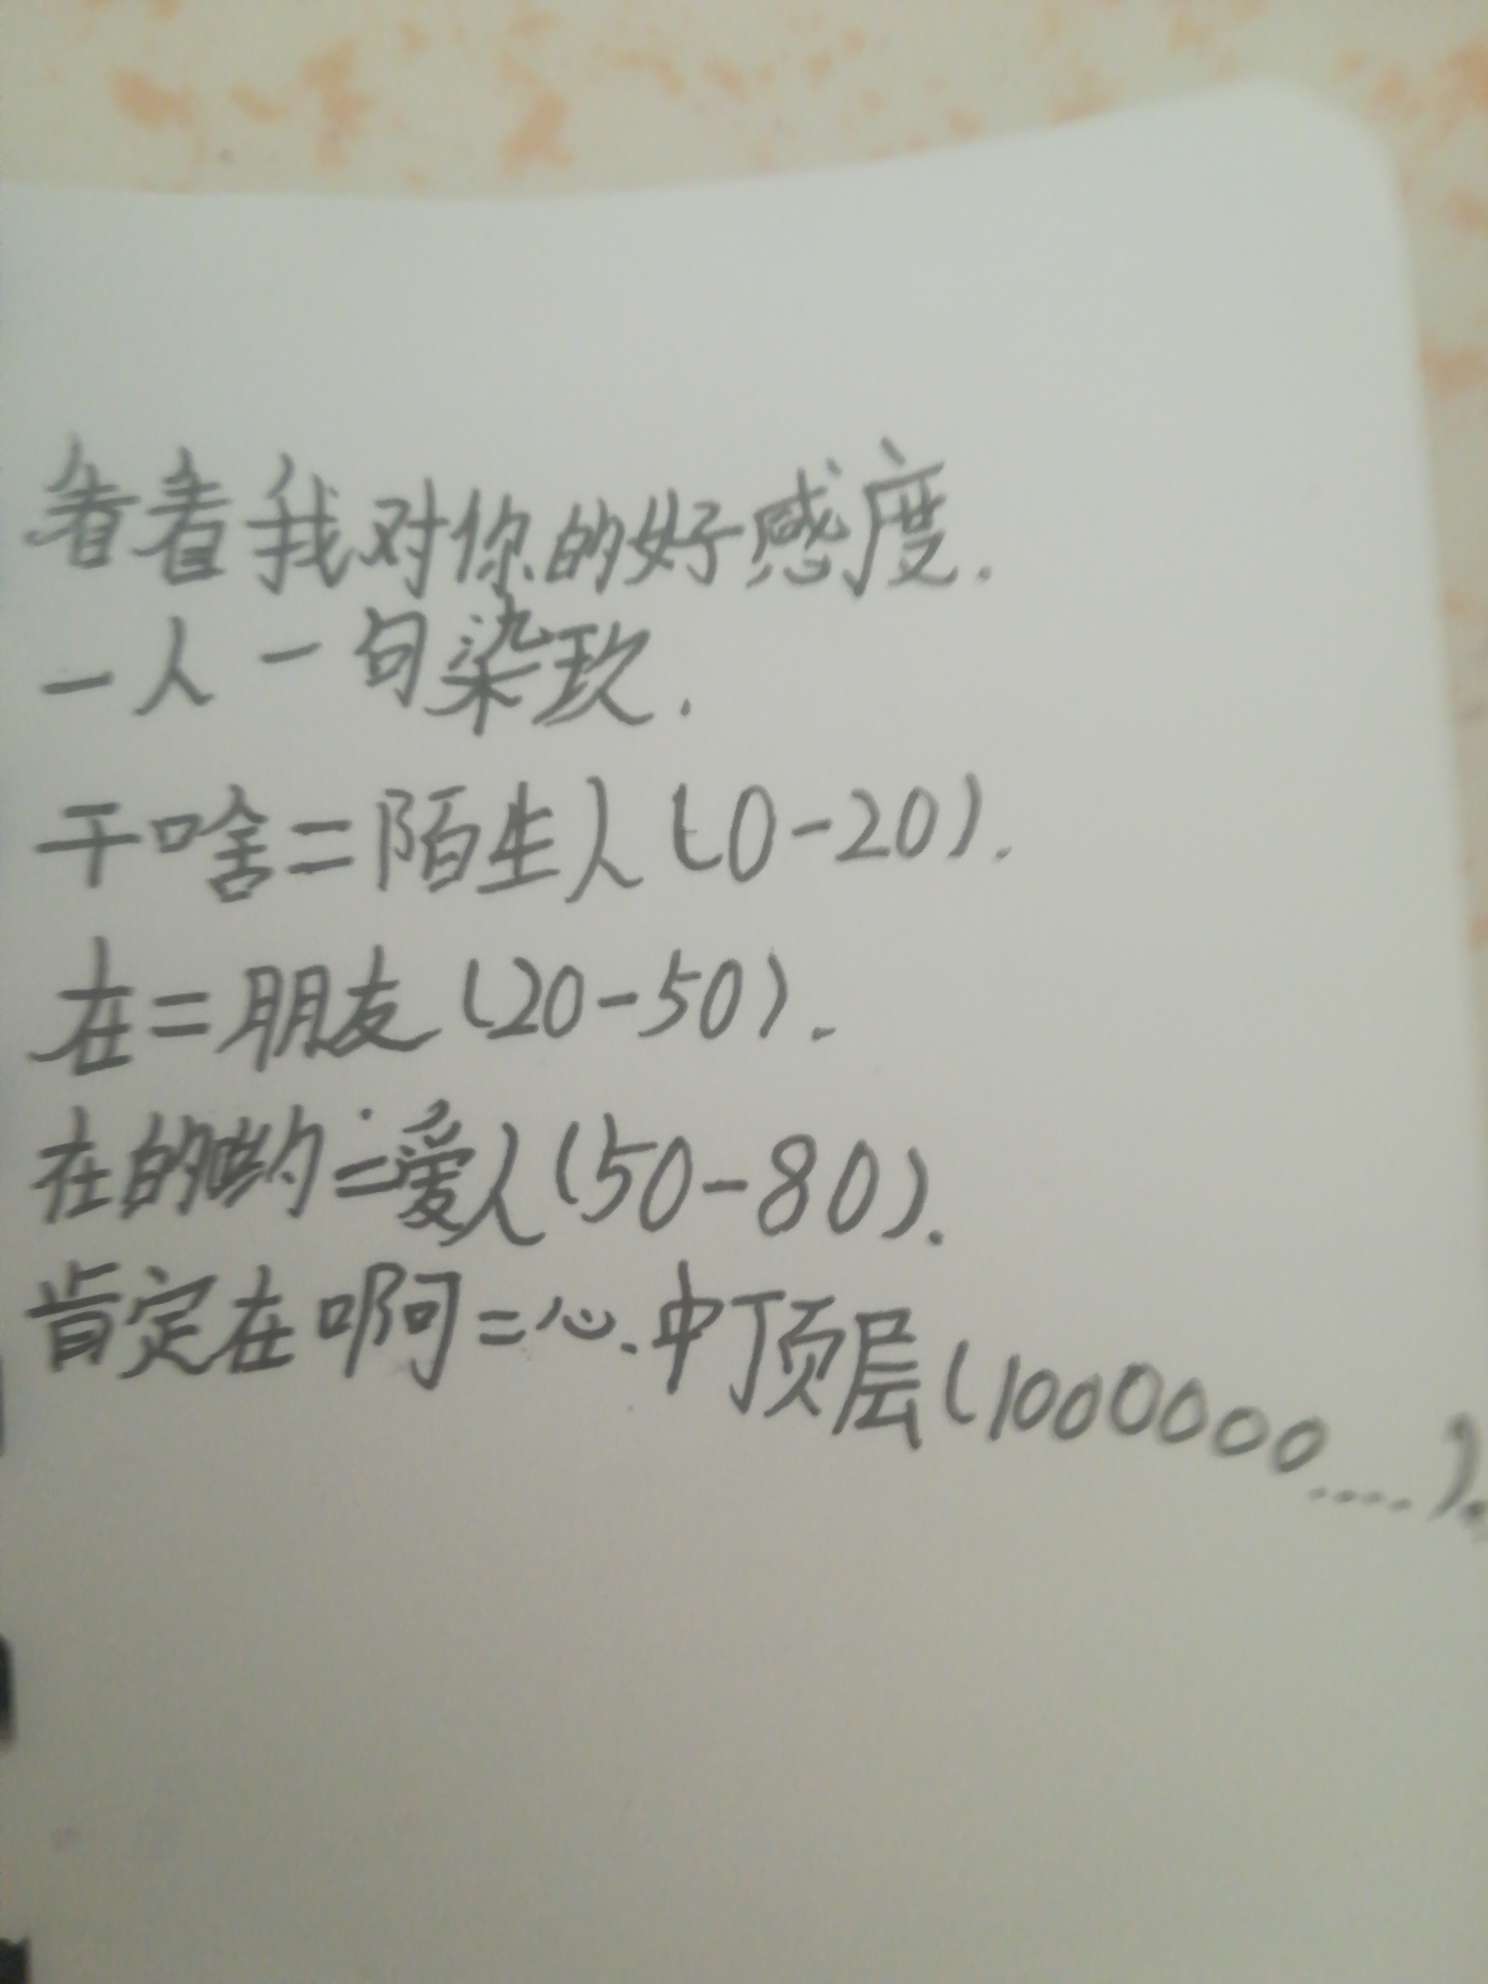 看看我对你的好感度.
一人一句染玖.
干啥=陌生人(0-20).
在=朋友(20-50).
在的哟=爱人(50-80).
肯定在啊=心中顶层(1000000....).